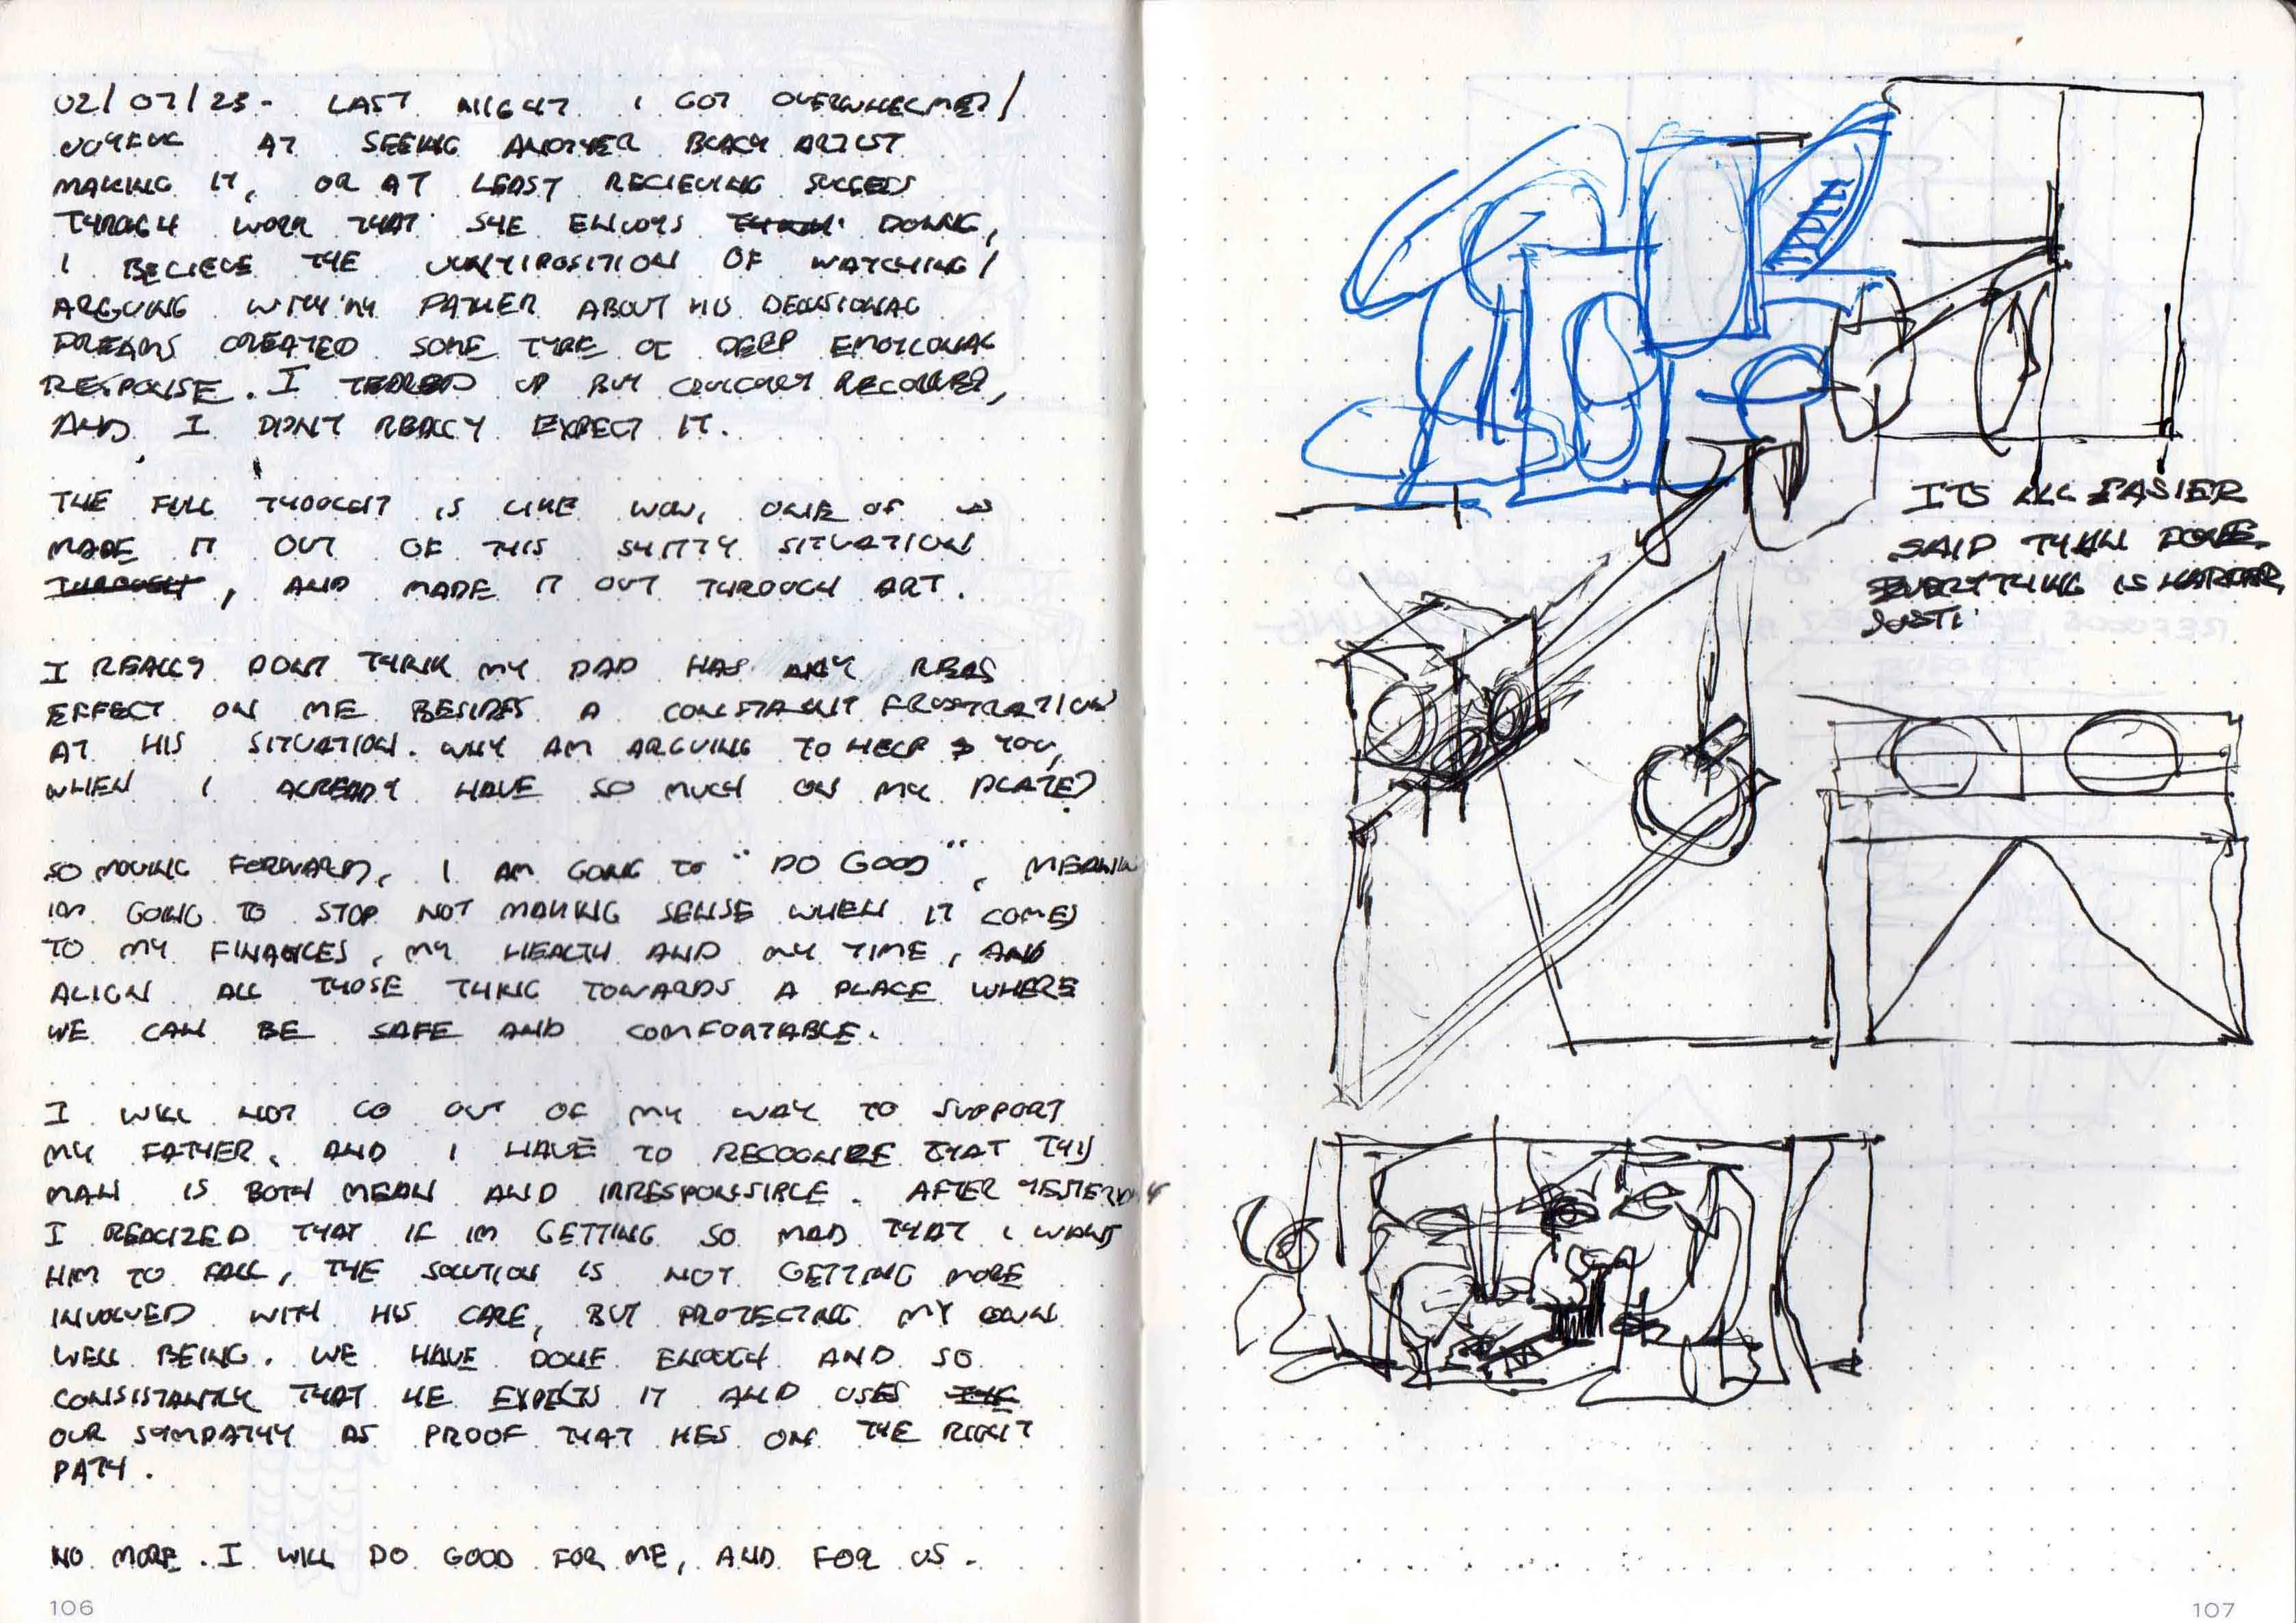 02/07/23 - LAST NIGHT I GOT OVERWHELMED/
JOYFUL AT SEEING ANOTHER BLACK ARTIST
MAKING IT, OR AT LEAST RECIEVING SUCCESS
THROUGH WORK THAT SHE ENJOYS DOING,
I BELIEVE THE JUXTIPOSITION OF WATCHING/
ARGUING WITH MY FATHER ABOUT HIS DELUSIONAL
DREAMS CREATED SOME TYPE OF DEEP EMOTIONAL
RESPONSE. I TEARED UP BUT QUICKLY RECOVERED,
AND I DIDNT REALLY EXPECT IT.
THE FULL THOUGHT IS LIKE WOW, ONE OF US
MADE IT OUT OF THIS SHITTY SITUATION
THROUGH, AND MADE IT OUT THROUGH ART.
I REALLY DONT THINK MY DAD HAS ANY REAL
EFFECT ON ME BESIDES A CONSTANT FRUSTRATION
AT HIS SITUATION. WHY AM ARGUING TO HELP YOU,
WHEN I ALREADY HAVE SO MUCH ON MY PLATE?
SO MOVING FORWARD, I AM GOING TO "DO GOOD", MEANIN
IM GOING TO STOP NOT MAKING SENSE WHEN IT COMES
TO MY FINANCES, MY HEALTH AND MY TIME, AND
ALIGN ALL THOSE THING TOWARDS A PLACE WHERE
WE CAN BE SAFE AND COMFORTABLE.
I WILL NOT GO OUT OF MY WAY TO SUPPORT
MY FATHER. AND I HAVE TO RECOGNIZE THAT THIS
MAN IS BOTH MEAN AND IRRESPONSIBLE. AFTER YESTERDAY
I REALIZED THAT IF IM GETTING SO MAD THAT I WANT
HIM TO FALL, THE SOLUTION IS NOT GETTING MORE
INVOLVED WITH HIS CARE, BUT PROTECTING MY OWN
WELL BEING. WE HAVE DONE ENOUGH AND SO
CONSISTANTLY THAT HE EXPECTS IT AND USES THE
OUR SYMPATHY AS PROOF THAT HES ON THE RIGHT
PATH.
NO MORE. I WILL DO GOOD FOR ME, AND FOR US.
106
ITS ALL EASIER
SAID THAN DONE.
EVERYTHING IS HARDER,
107